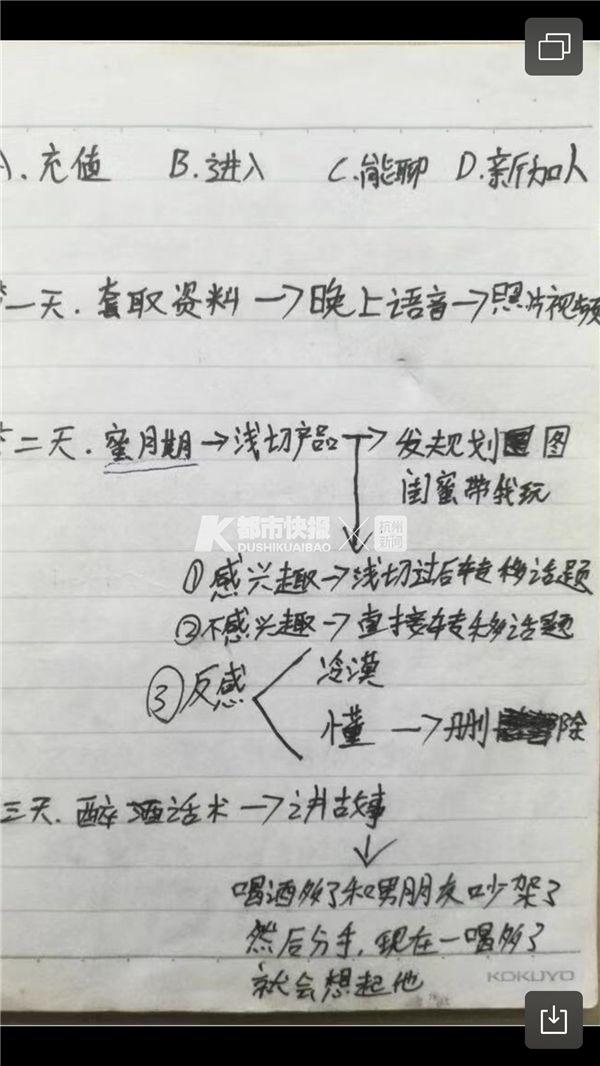 A.充值 B.进入 C.能聊 D.新加人
一天.套取资料→晚上语音→照片视频
二天.蜜月期→浅切产品→发规划图
闺蜜带我玩
K都市快报 × 杭州新闻
DUSHIKUAIBAO
①感兴趣→浅切过后转移话题
②不感兴趣→直接转移话题
③反感
冷漠
懂→删除
三天.醉酒话术→讲故事
喝酒多了和男朋友吵架了
然后分手,现在一喝多了
就会想起他
KOKUYO